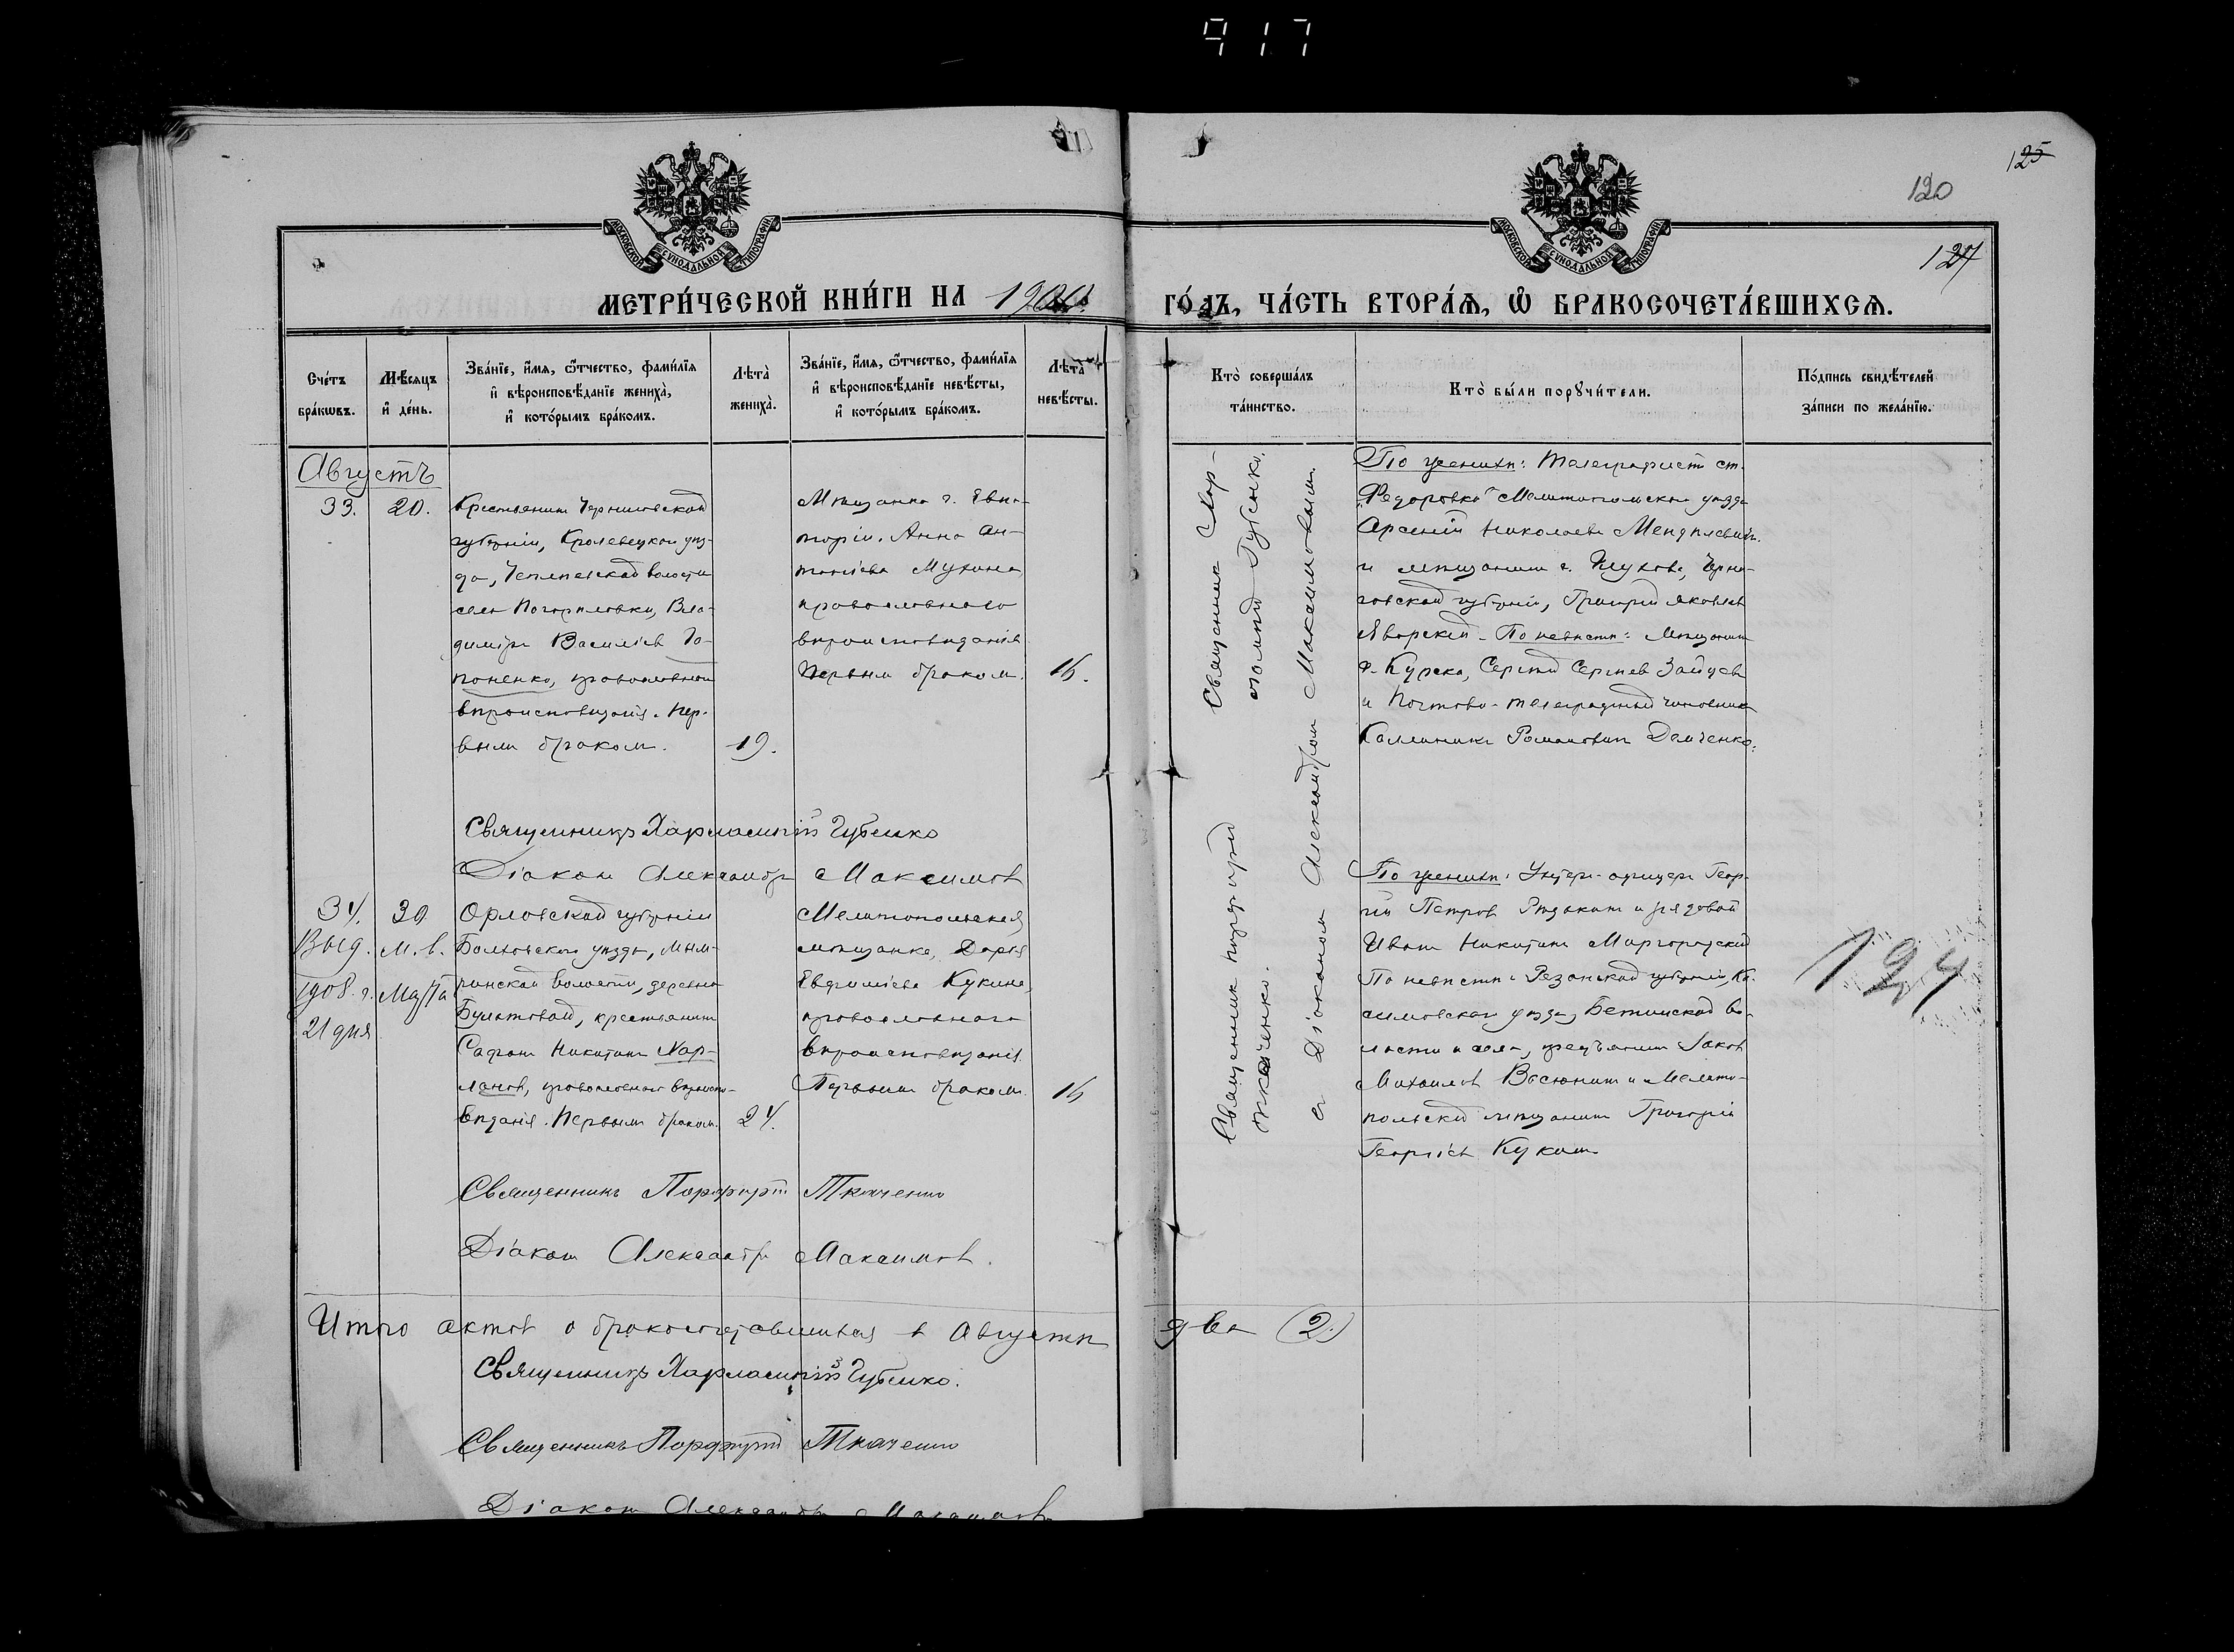 917
125
120
127
МОСКОВСКОЙ СѴНОДАЛЬНОЙ ТИПОГРАФІИ
МОСКОВСКОЙ СѴНОДАЛЬНОЙ ТИПОГРАФІИ
МЕТРИ́ЧЕСКОЙ КНИ́ГИ НА
ГО́ДЪ, ЧА́СТЬ ВТОРА́Ѧ, Ѡ҆ БРАКОСОЧЕТА́ВШИХСѦ.
Сче́тъ бра́кѡвъ.
Мѣ́сѧцъ и҆ де́нь.
Зва́нїе, и҆́мѧ, ѻ҆́тчество, фами́лїѧ
и҆ вѣроисповѣ́данїе жениха̀,
и҆ кото́рымъ бра́комъ.
Лѣта̀ жениха̀.
Зва́нїе, и҆́мѧ, ѻ҆́тчество, фами́лїѧ
и҆ вѣроисповѣ́данїе невѣ́сты,
и҆ кото́рымъ бра́комъ.
Лѣта̀ невѣ́сты.
Кто̀ соверша́лъ та́инство.
Кто̀ бы́ли порꙋчи́тели.
По́дпись свидѣ́телей
за́писи по жела́нїю.
Августъ
33.
20.
Крестьянинъ Черниговской
губерніи, Кролевецкаго уѣз-
да, волости
села Погорѣловки, Вла-
диміръ Василіевъ То-
поненко, православнаго
вѣроисповѣданія. Пер-
вымъ бракомъ.
19.
Мѣщанка г. Евпа-
торіи. Анна Ан-
тоніева Мухина,
православнаго
вѣроисповѣданія
Первымъ бракомъ.
16.
Священникъ Хар-
лампій Губенко.
съ Діакономъ Александромъ Максимовымъ.
По женихѣ: Телеграфистъ ст.
„Федоровка" Мелитопольскаго уѣзда
Арсеній Николаевъ
и мѣщанинъ г. Глухова, Черни-
говской губерніи, Григорій Яковлевъ
Яворскій. По невѣстѣ: Мѣщанинъ
г. Курска, Сергѣй Сергѣевъ Зайцевъ
и Почтово-телеграфный чиновникъ
Каллиникъ Романовичъ Демченко.
Священникъ Харлампій Губенко
Діаконъ Александръ Максимовъ
34.
30
Выд. м. в.
1908. г. Марта
21 дня
Орловской губерніи
Болховскаго уѣзда,
волости, деревни
крестьянинъ
Сафонъ Никитинъ Хар-
ламовъ, православнаго вѣроиспо-
вѣданія. Первымъ бракомъ.
24.
Мелитопольская
мѣщанка, Дарія
Евфиміева Кукина,
православнаго
вѣроисповѣданія.
Первымъ бракомъ.
16
Священникъ Порфирій
Ткаченко.
По женихѣ: Унтеръ-офицеръ Геор-
гій Петровъ и рядовой
Иванъ Никитинъ Миргородскій
По невѣстѣ: Рязанской губерніи, Ка-
симовскаго уѣзда, Бетинской во-
лости и села, крестьянинъ Яковъ
Михаиловъ Васюнинъ и Мелито-
польскій мѣщанинъ Григорій
Георгіевъ Кукинъ
124
Священникъ Порфирій Ткаченко
Діаконъ Александръ Максимовъ.
Итого актовъ о бракосочетавшихся въ Августѣ два (2.)
Священникъ Харлампій Губенко.
Священникъ Порфирій Ткаченко
Діаконъ Александръ Максимовъ